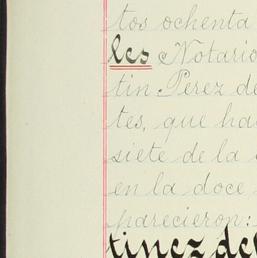 tos ochenta
les Notario
tin Perez de
tes, que ha
siete de la
en la doce
parecieron:
tinez del